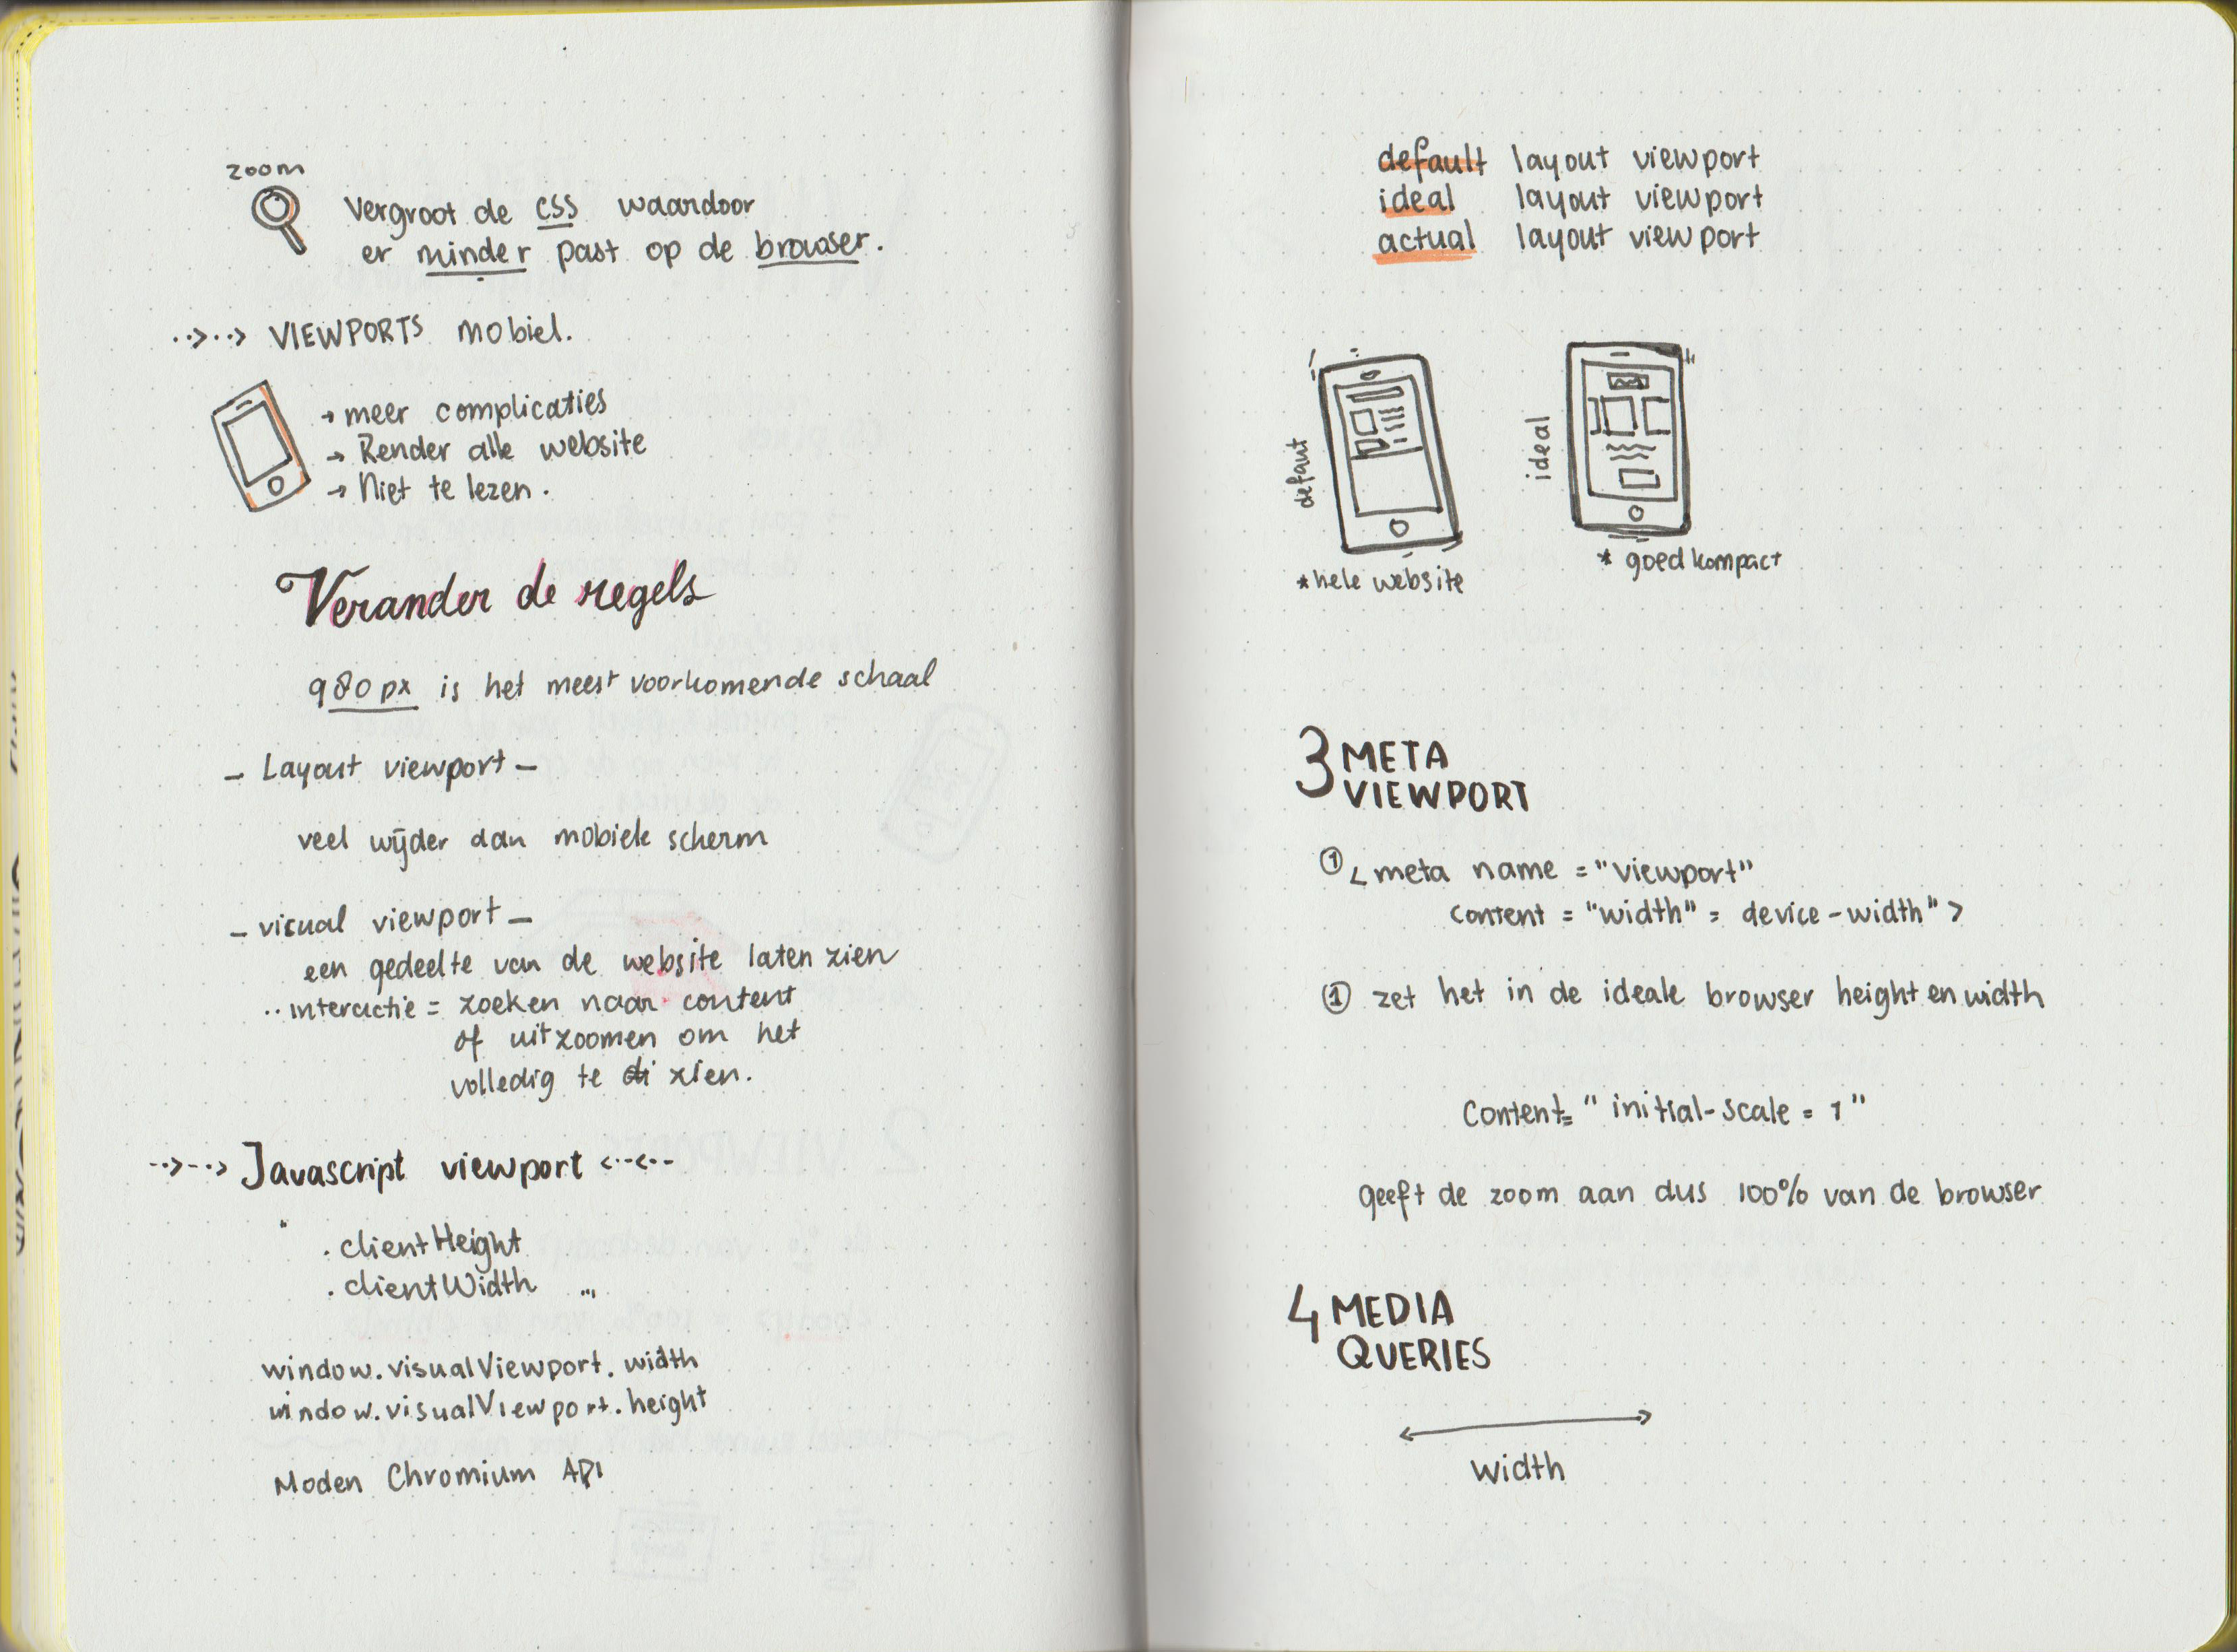 zoom
Vergroot de CSS waardoor
er minder past op de browser.
VIEWPORTS mobiel.
→ meer complicaties
→ Render alle website
→ Niet te lezen.
Verander de regels
980px is het meest voorkomende schaal
- Layout viewport -
veel wijder dan mobiele scherm
- visual viewport -
een gedeelte van de website laten zien
.. interactie = zoeken naar content
of uitzoomen om het
volledig te zien.
Javascript viewport
. clientHeight
. clientWidth
window.visualViewport.width
window.visualViewport.height
Moden Chromium API
default layout viewport
ideal layout viewport
actual layout viewport
defaut
ideal
* hele website
* goed kompact
3 META
VIEWPORT
① < meta name = "viewport"
content = "width" = device-width" >
① zet het in de ideale browser height en width
Content = "initial-scale = 1"
geeft de zoom aan dus 100% van de browser
4 MEDIA
QUERIES
width